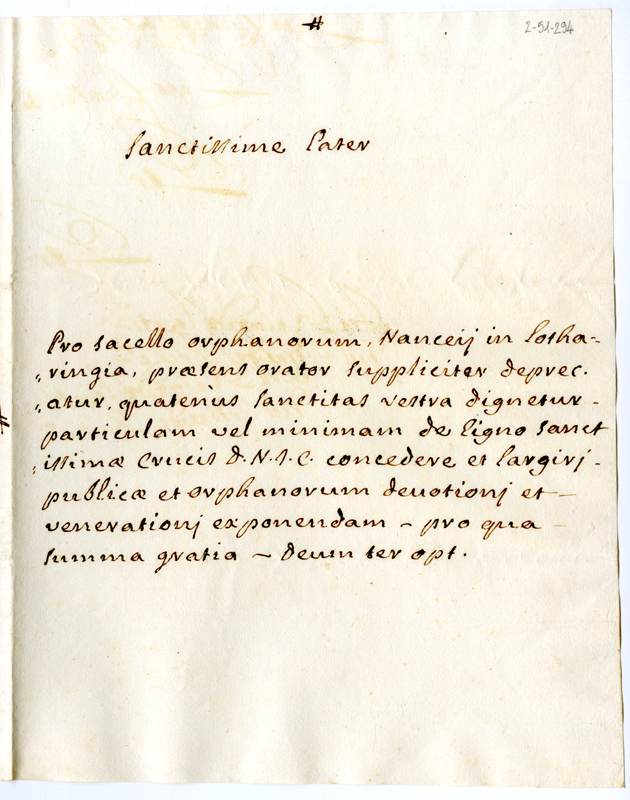 #
2-51-294
Sanctissime Pater
Pro sacello orphanorum, Nanceij in Lotha-
„ringia, præsens orator suppliciter deprec.
„atur, quatenùs Sanctitas vestra dignetur-
particulam vel minimam de Ligno Sanct
„issimæ Crucis D.N.J.C. concedere et largirj-
publicæ et orphanorum devotionj et-
venerationj exponendam - pro qua-
summa gratia - deum ter opt.